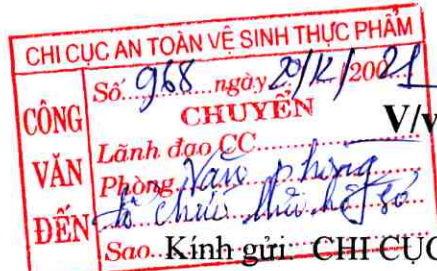 CHI CỤC AN TOÀN VỆ SINH THỰC PHẨM
CÔNG VĂN ĐẾN
Số 968 ngày 20/12/2021
CHUYỂN
V/v
Lãnh đạo CC
Phòng Văn phòng
tổ chức
Sao
Kính gửi: CHI CỤC